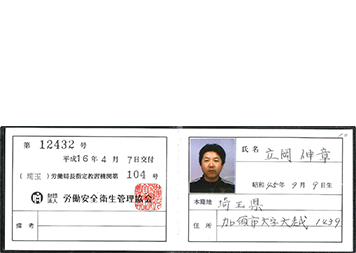 第 12432 号
平成16年4月7日交付
(埼玉)労働局長指定教習機関第 104 号
財団法人 労働安全衛生管理協会
備考
氏名 立岡 伸章
昭和45年9月9日生
本籍地 埼玉県
住所 加須市大字大越 1439